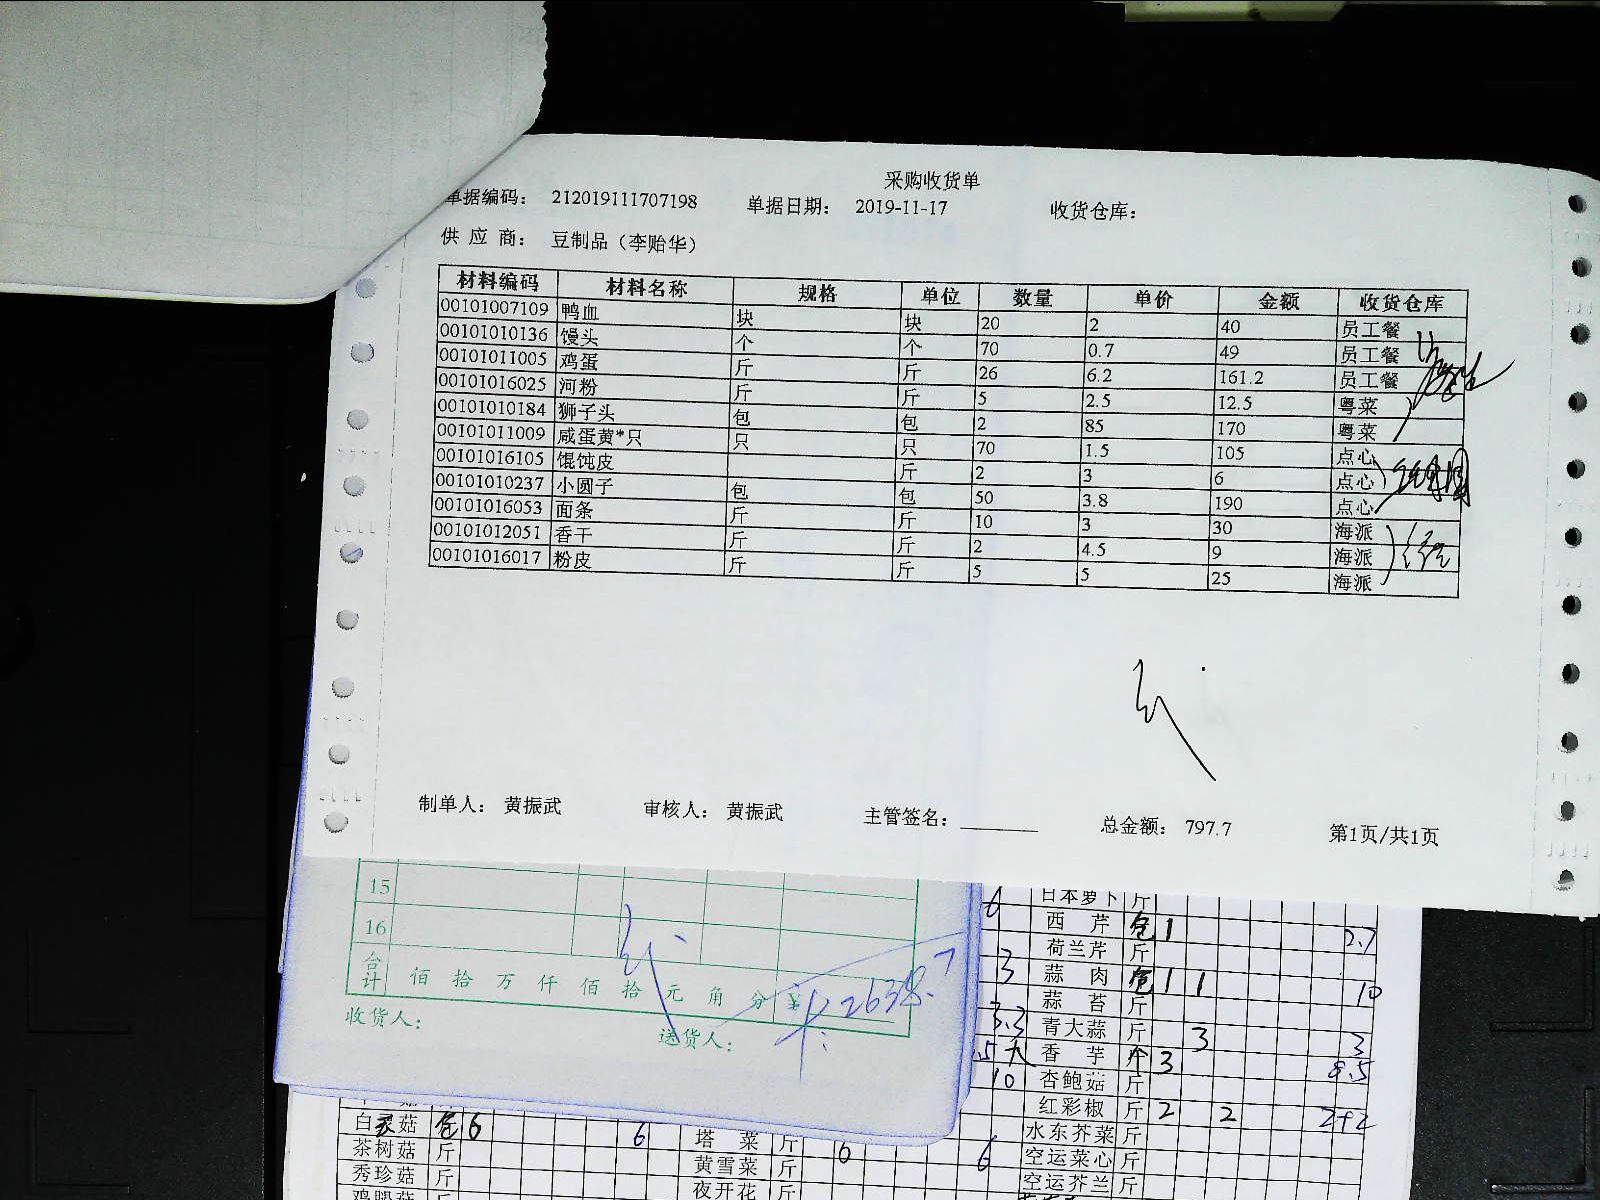 采购收货单
单据编码： 212019111707198 单据日期： 2019-11-17 收货仓库：
供 应 商： 豆制品（李贻华）
材料编码 材料名称 规格 单位 数量 单价 金额 收货仓库
00101007109 鸭血 块 块 20 2 40 员工餐
00101010136 馒头 个 个 70 0.7 49 员工餐
00101011005 鸡蛋 斤 斤 26 6.2 161.2 员工餐
00101016025 河粉 斤 斤 5 2.5 12.5 粤菜
00101010184 狮子头 包 包 2 85 170 粤菜
00101011009 咸蛋黄*只 只 只 70 1.5 105 点心
00101016105 馄饨皮 斤 2 3 6 点心
00101010237 小圆子 包 包 50 3.8 190 点心
00101016053 面条 斤 斤 10 3 30 海派
00101012051 香干 斤 斤 2 4.5 9 海派
00101016017 粉皮 斤 斤 5 5 25 海派
制单人： 黄振武 审核人： 黄振武 主管签名： 总金额： 797.7 第1页/共1页
15
16
合计 佰 拾 万 仟 佰 拾 元 角 分 ¥ 2638.7
收货人： 送货人：
6 日本萝卜 斤
西 芹 1 2.7
荷兰芹 斤
3 蒜 肉 1 1 10
蒜 苔 斤
3.3 青大蒜 斤 3 3
香 芋 个 3 8.5
10 杏鲍菇 斤
红彩椒 斤 2 2 2+2
水东芥菜 斤
空运菜心 斤
空运芥兰 斤
白灵菇 6 6 塔 菜 斤 6 6
茶树菇 斤 黄雪菜 斤
秀珍菇 斤 夜开花 斤